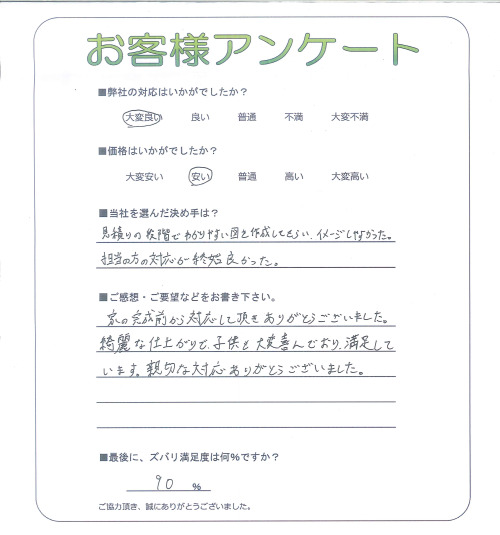 お客様アンケート
■弊社の対応はいかがでしたか？
大変良い 良い 普通 不満 大変不満
■価格はいかがでしたか？
大変安い 安い 普通 高い 大変高い
■当社を選んだ決め手は？
見積りの段階でわかりやすい図を作成してもらい、イメージしやすかった。
担当の方の対応が終始良かった。
■ご感想・ご要望などをお書き下さい。
家の完成前から対応して頂きありがとうございました。
綺麗な仕上がりで、子供も大変喜んでおり、満足して
います。親切な対応ありがとうございました。
■最後に、ズバリ満足度は何％ですか？
90 %
ご協力頂き、誠にありがとうございました。